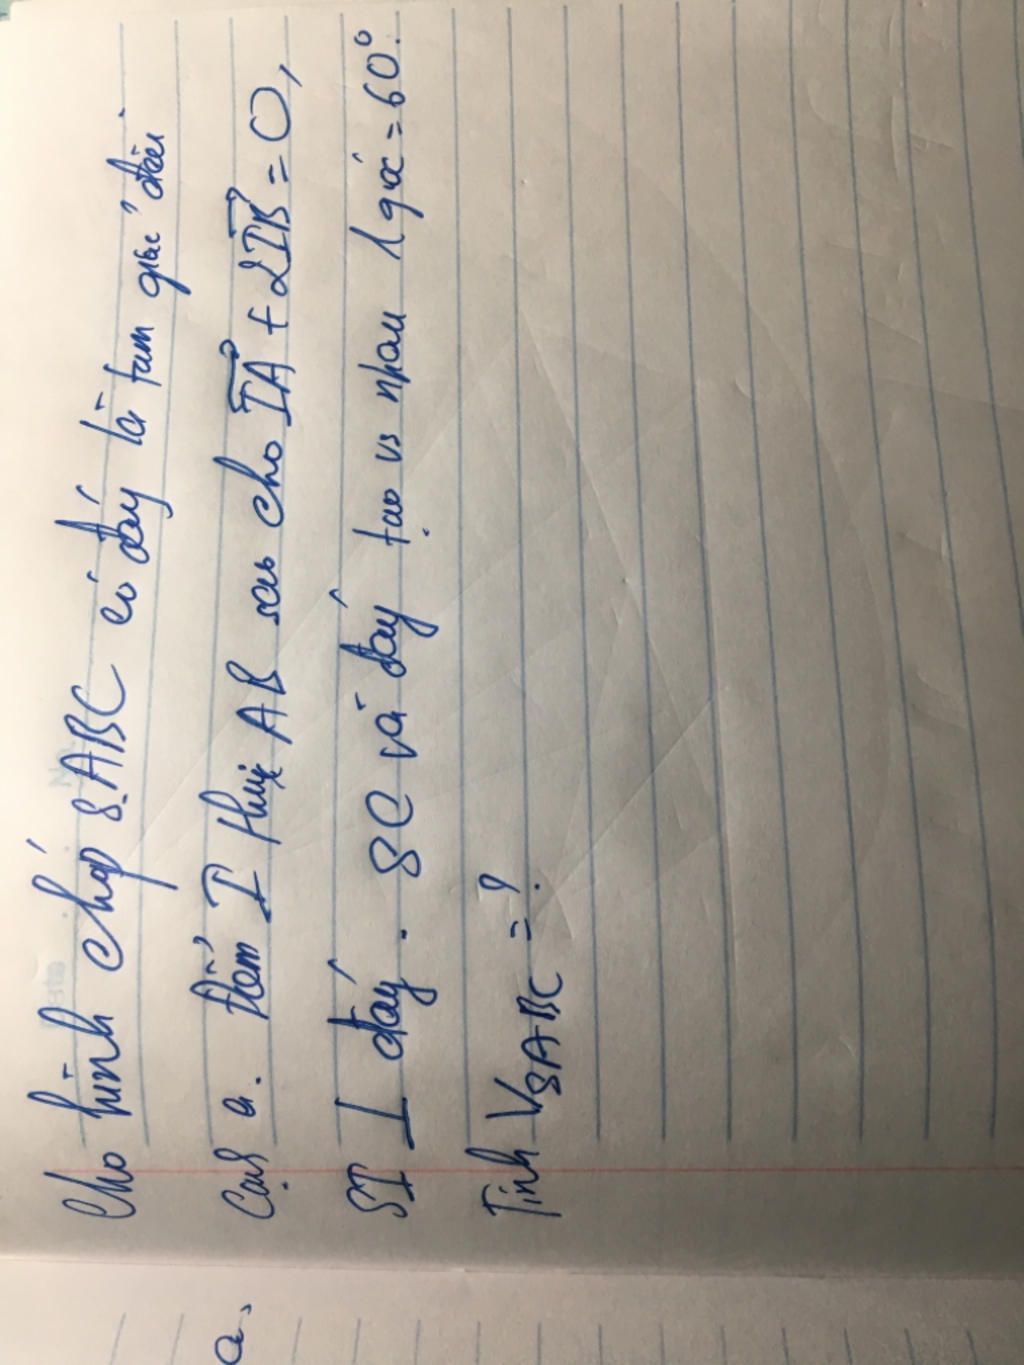 Cho hình chóp S.ABC có đáy là tam giác đều
Cạnh a. Điểm I thuộc AB sao cho IA + 2IB = 0,
SI ⊥ đáy. SC và đáy tạo vs nhau 1 góc = 60°.
Tính V SABC = ?
a,